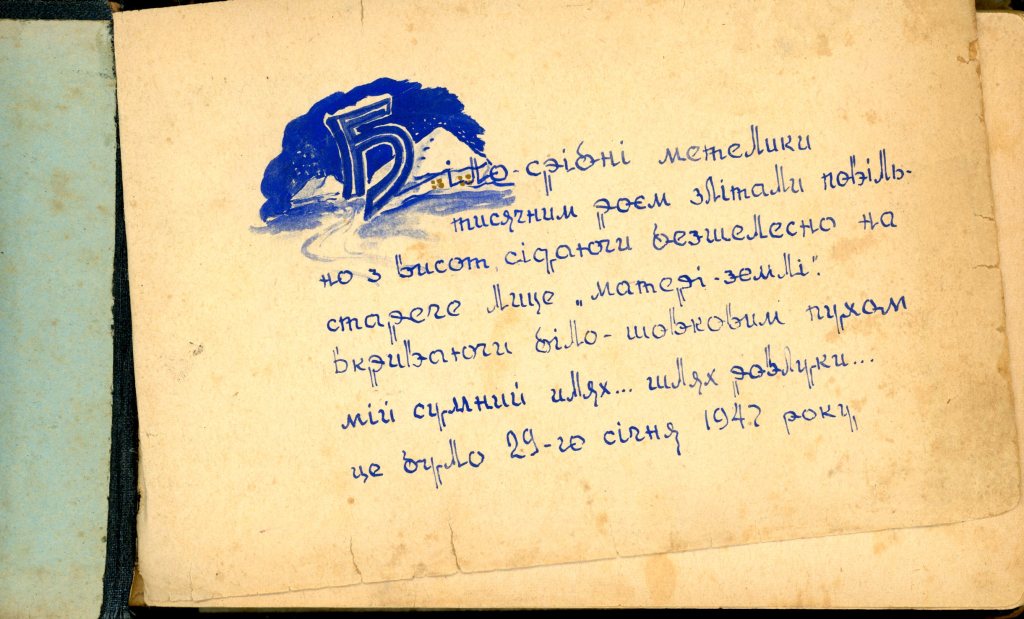 Біло-срібні метелики
тисячним роєм злітали повіль-
но з висот, сідаючи безшелесно на
старече лице „матері-землі".
вкриваючи біло-шовковим пухом
мій сумний шлях... шлях розлуки...
це було 29-го січня 1947 року